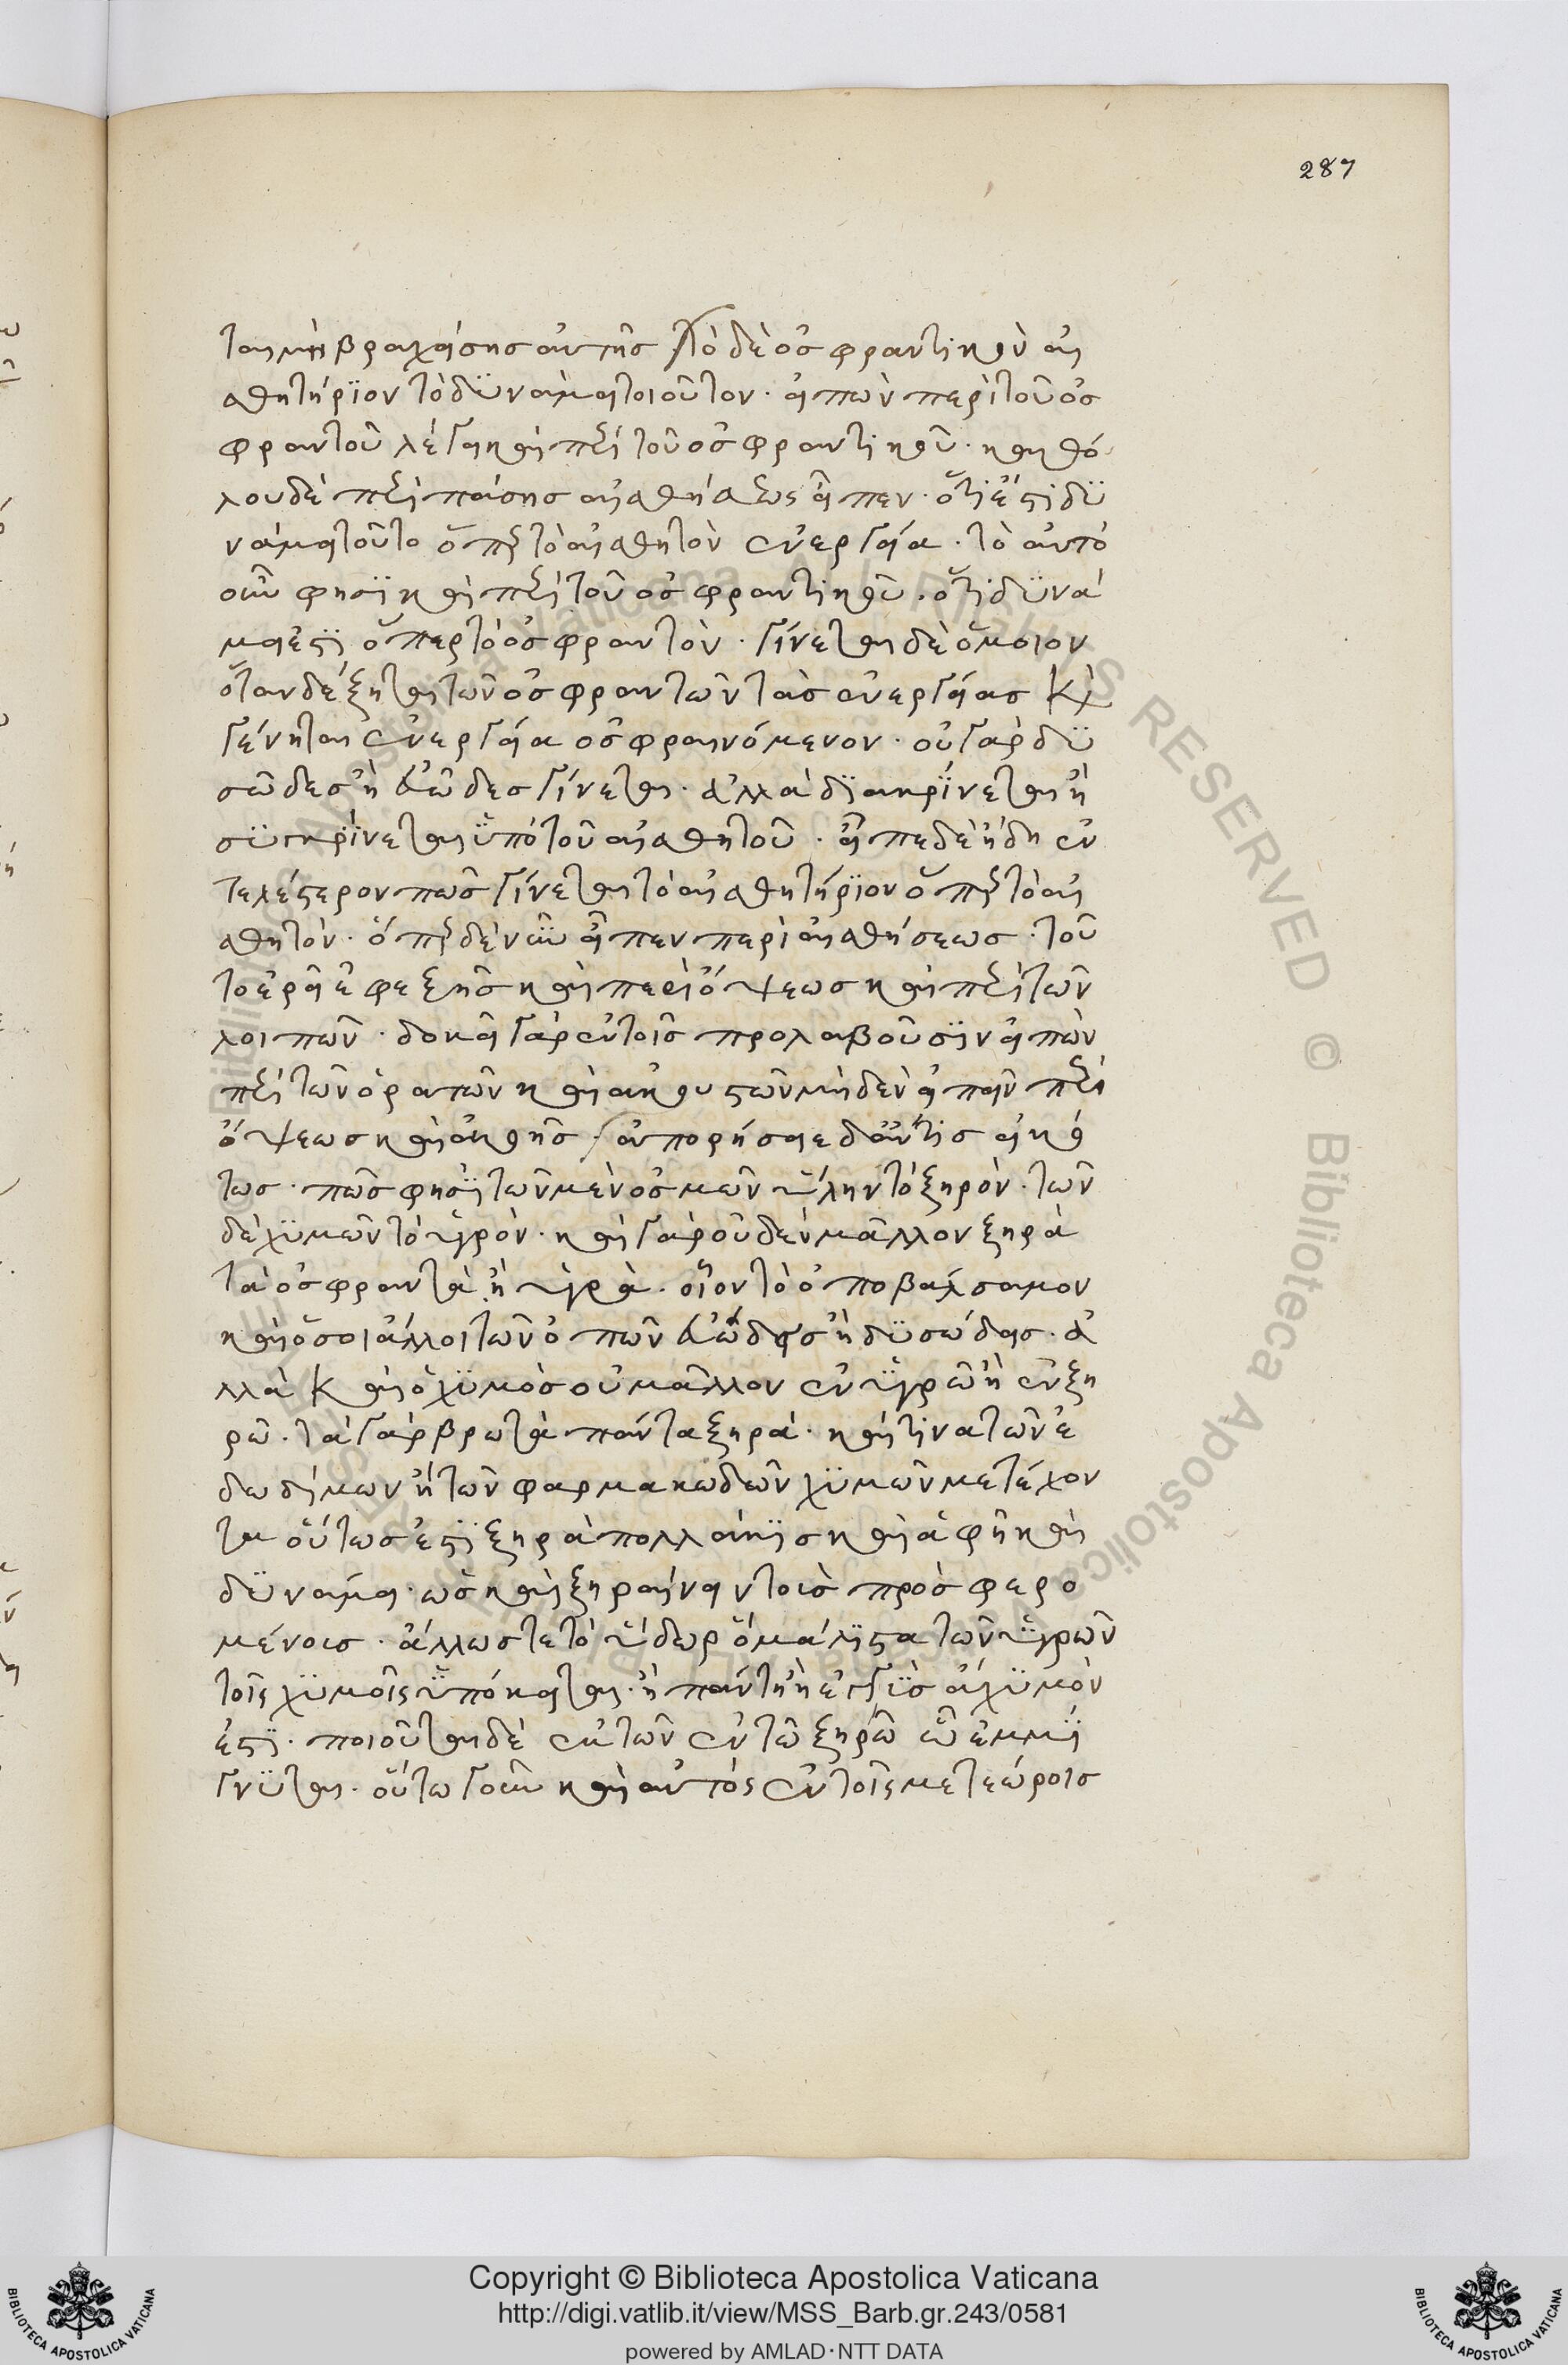 287
ται μὴ βραχείσης αὐτῆς Τὸ δὲ ὀσφραντικὸν αἰ
σθητήριον τὸ δυνάμει τοιοῦτον· εἰπὼν περὶ τοῦ ὀσ
φραντοῦ λέγει καὶ περὶ τοῦ ὀσφραντικοῦ· καθό
λου δὲ περὶ πάσης αἰσθήσεως εἶπεν· ὅτι ἐστὶ δυ
νάμει τοῦτο ὅπερ τὸ αἰσθητὸν ἐνεργείᾳ· τὸ αὐτὸ
οὖν φησὶ καὶ περὶ τοῦ ὀσφραντικοῦ· ὅτι δυνά
μει ἐστὶ ὅπερ τὸ ὀσφραντὸν· γίνεται δὲ ὅμοιον
ὅταν δέξηται τῶν ὀσφραντῶν τὰς ἐνεργείας κ
γένηται ἐνεργείᾳ ὀσφραινόμενον· οὐ γὰρ δυ
σῶδες ἢ εὐῶδες γίνεται· ἀλλὰ διακρίνεται ἢ
συγκρίνεται ὑπὸ τοῦ αἰσθητοῦ· εἶπε δὲ ἤδη ἐν
τελέστερον πῶς γίνεται τὸ αἰσθητήριον ὅπερ τὸ αἰ
σθητόν· ὅπερ δὲ νῦν εἶπεν περὶ αἰσθήσεως· τοῦ
το ἐρεῖ ἐφεξῆς καὶ περὶ ὄψεως καὶ περὶ τῶν
λοιπῶν· δοκεῖ γὰρ ἐν τοῖς προλαβοῦσιν εἰπὼν
περὶ τῶν ὁρατῶν καὶ ἀκουστῶν μηδὲν εἰπεῖν περὶ
ὄψεως καὶ ἀκοῆς ἀπορήσειε δ' ἄν τις εἰκό
τως· πῶς φησὶ τῶν μὲν ὀσμῶν ὕλην τὸ ξηρόν· τῶν
δὲ χυμῶν τὸ ὑγρὸν· καὶ γὰρ οὐδὲν μᾶλλον ξηρὰ
τὰ ὀσφραντὰ ἢ ὑγρὰ· οἷον τὸ ὀποβάλσαμον
καὶ ὅσοι ἄλλοι τῶν ὀπῶν εὐώδεις ἢ δυσώδεις· ἀ
λλὰ καὶ ὁ χυμὸς οὐ μᾶλλον ἐν ὑγρῶ ἢ ἐν ξη
ρῶ· τὰ γὰρ βρωτὰ πάντα ξηρά· καὶ τινα τῶν ἐ
δωδίμων ἢ τῶν φαρμακωδῶν χυμῶν μετέχον
τα οὕτως ἐστὶ ξηρὰ πολλάκις καὶ ἁφῆ καὶ
δυνάμει· ὡς καὶ ξηραίνειν τοῖς προσφερο
μένοις· ἄλλως τε τὸ ὕδωρ ὃ μάλιστα τῶν ὑγρῶν
τοῖς χυμοῖς ὑπόκειται· ἢ πάντη ἢ ἐγγὺς ἄχυμόν
ἐστι· ποιοῦται δὲ ἐκ τῶν ἐν τῶ ξηρῶ ὧ ἐμμί
γνυται· οὕτω γοῦν καὶ αὐτὸς ἐν τοῖς μετεώροις
Copyright © Biblioteca Apostolica Vaticana
http://digi.vatlib.it/view/MSS_Barb.gr.243/0581
powered by AMLAD·NTT DATA